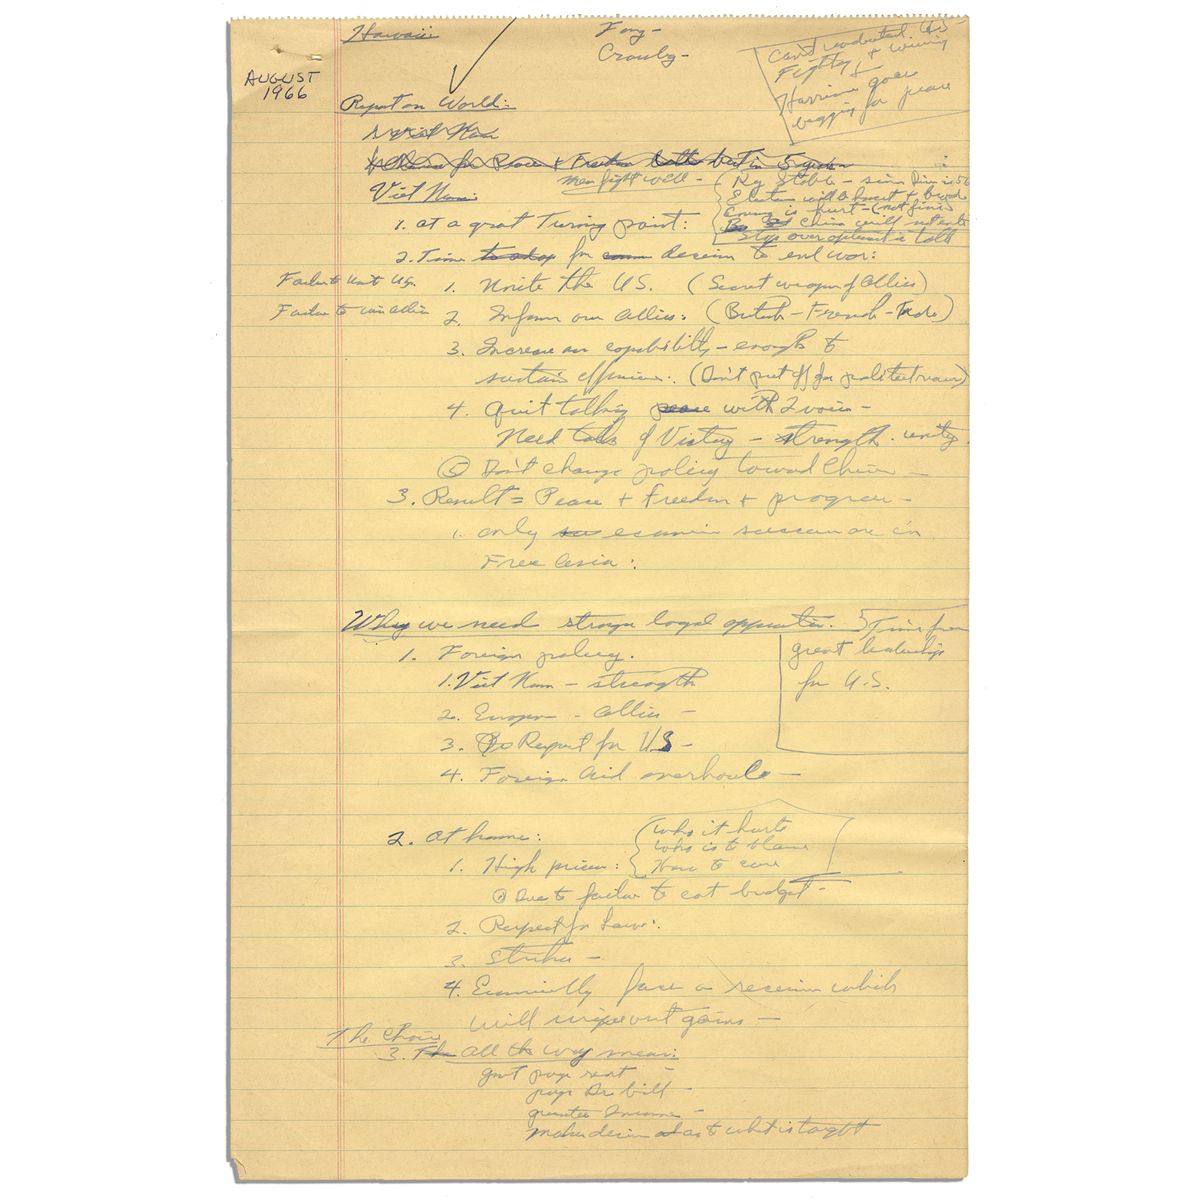 Hawaii
Fong -
Crosby -
AUGUST
1966
Can't understand US
Fighting & winning
&
Harriman goes
begging for peace
Report on World:
1. Viet Nam
Peace + Freedom
men fight well -
Viet Nam:
Ky Stable - since
Election will be honest &
Enemy is hurt - (not finis
China will
Stop over optimistic talk
1. At a great Turning point:
2. Time today for decision to end war:
Failure to Unit U.S.
Failure to win allies
1. Unite the U.S. (Secret weapon of Allies)
2. Inform our Allies: (British - French - Trade)
3. Increase our capability - enough to
sustain offensive: (Don't put off for political reasons)
4. Quit talking peace with 2 voices -
Need talk of Victory - strength - unity
5 Don't change policy toward China -
3. Result = Peace + Freedom + progress -
1. only economic successes are in
Free Asia:
Why we need strong loyal opposition.
Time for
great leadership
for U.S.
1. Foreign policy.
1. Viet Nam - strength
2. Europe - Allies -
3. Respect for US -
4. Foreign Aid overhaul -
2. At home:
Who it hurts
Who is to blame
How to cure
1. High prices:
Due to failure to cut budget -
2. Respect for Law:
3. Strikes -
4. Economically face a recession which
will wipe out gains -
The Choice
3. The All the way means:
Govt pays rent -
pays Dr bill -
guarantee Income -
makes decision as to what is taught